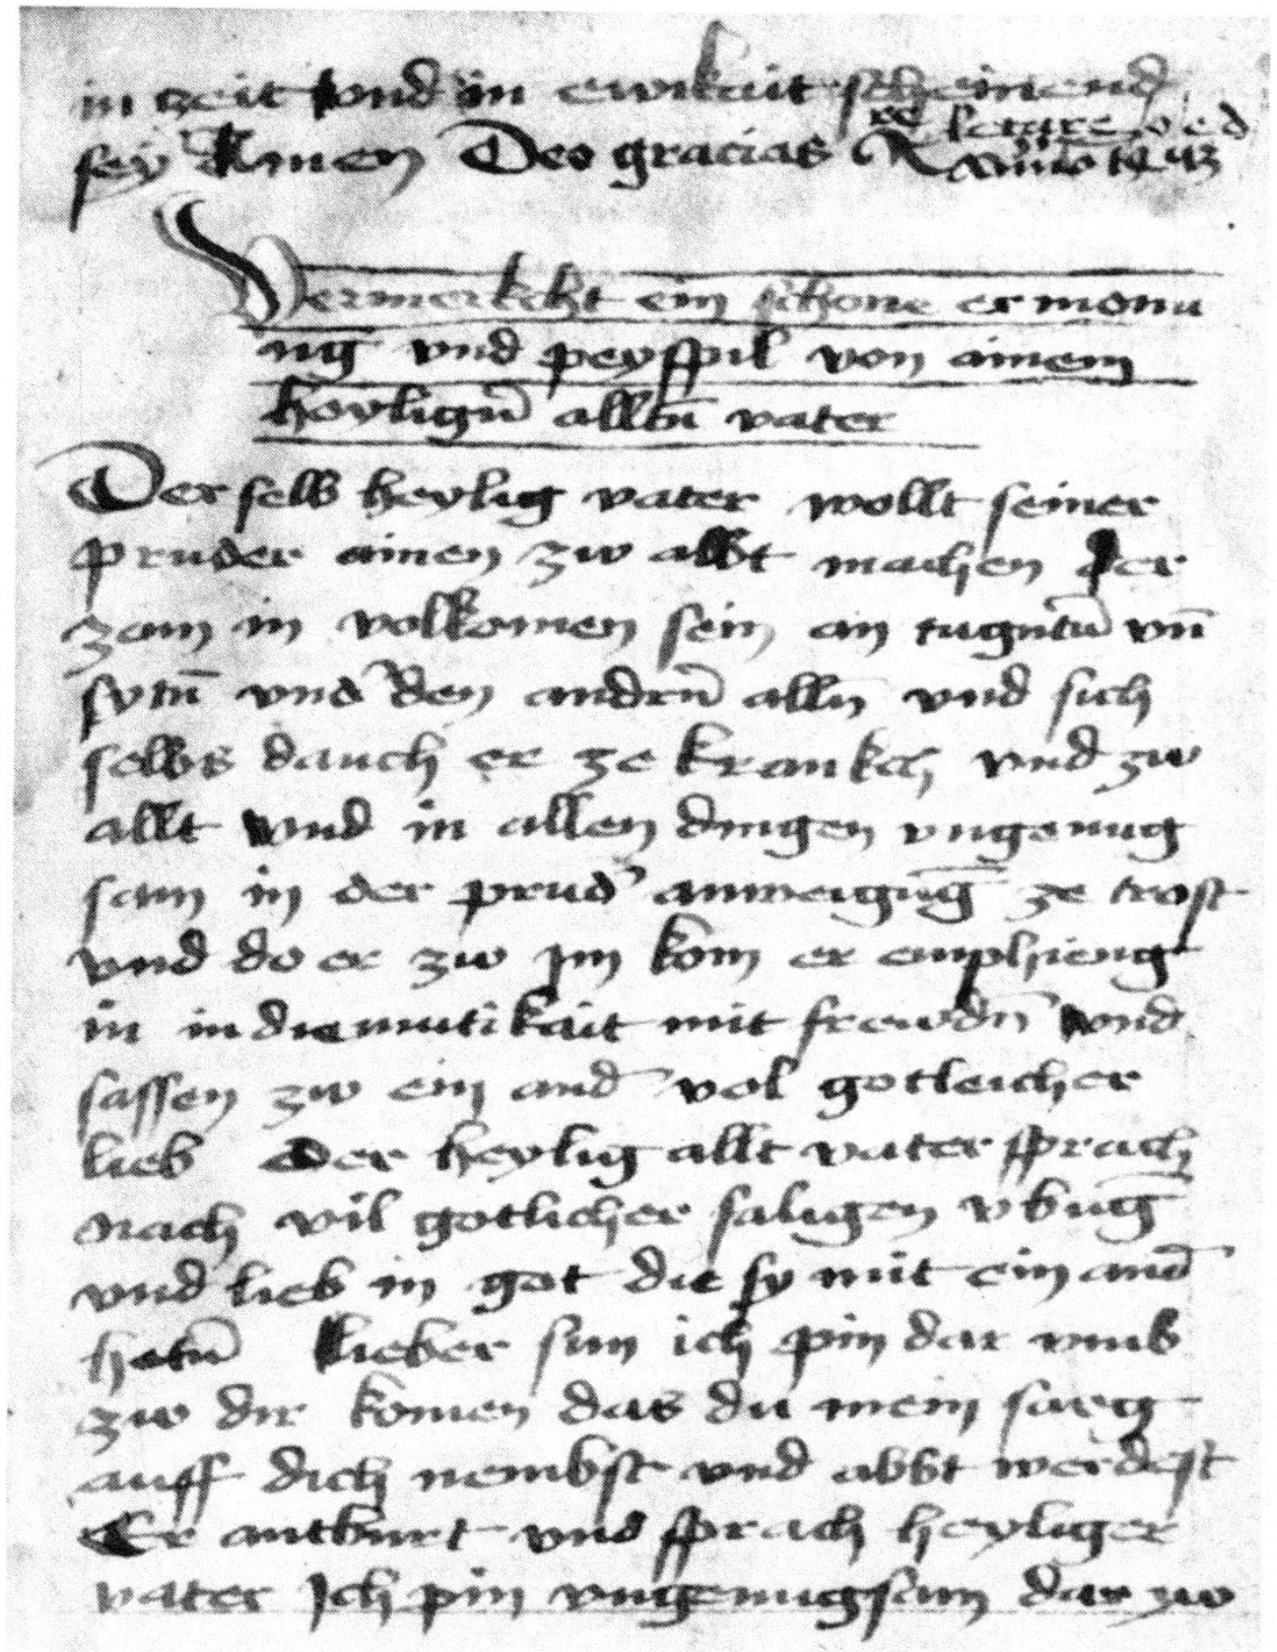 in zeit vnd in ewikait scheinend
sey Amen Deo gracias
Vermerkcht ein schone ermonu
ng vnd peyspil von ainem
heyligñ alltñ vater
Der selb heylig vater wollt seiner
pruder ainen zw abbt machen der
zam in volkomen sein an tugntñ vñ
sytñ vnd den andrñ alln vnd sich
selbs dauch er ze krankch vnd zw
allt vnd in allen dingen vngenug
sam in der prud' anweigūg ze trost
vnd do er zw ym kom er enphieng
in in diemutikait mit frewdñ vnd
sassen zw ein and' vol gotleicher
lieb Der heylig allt vater sprach
nach vil gotlicher saligen vbūg
vnd lieb in got die sy mit ein and'
hetñ lieber sun ich pin dar vmb
zw dir komen das du mein sarg
auff dich nembst vnd abbt werdest
Er antburt vnd sprach heyliger
vater Ich pin vngenugsam dar zw